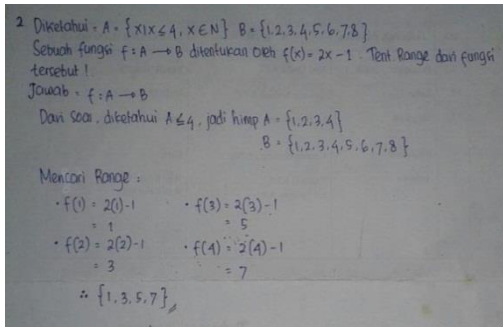 2 Diketahui = A = {x|x ≤ 4, x ∈ N} B = {1.2.3.4.5.6.7.8}
Sebuah fungsi f : A → B ditentukan oleh f(x) = 2x - 1. Tent. Range dari fungsi
tersebut !
Jawab = f : A → B
Dari soal, diketahui A ≤ 4, jadi himp A = {1.2.3.4}
B = {1.2.3.4.5.6.7.8}
Mencari Range :
• f(1) = 2(1)-1
= 1
• f(2) = 2(2)-1
= 3
• f(3) = 2(3)-1
= 5
• f(4) = 2(4)-1
= 7
∴ {1,3,5,7}